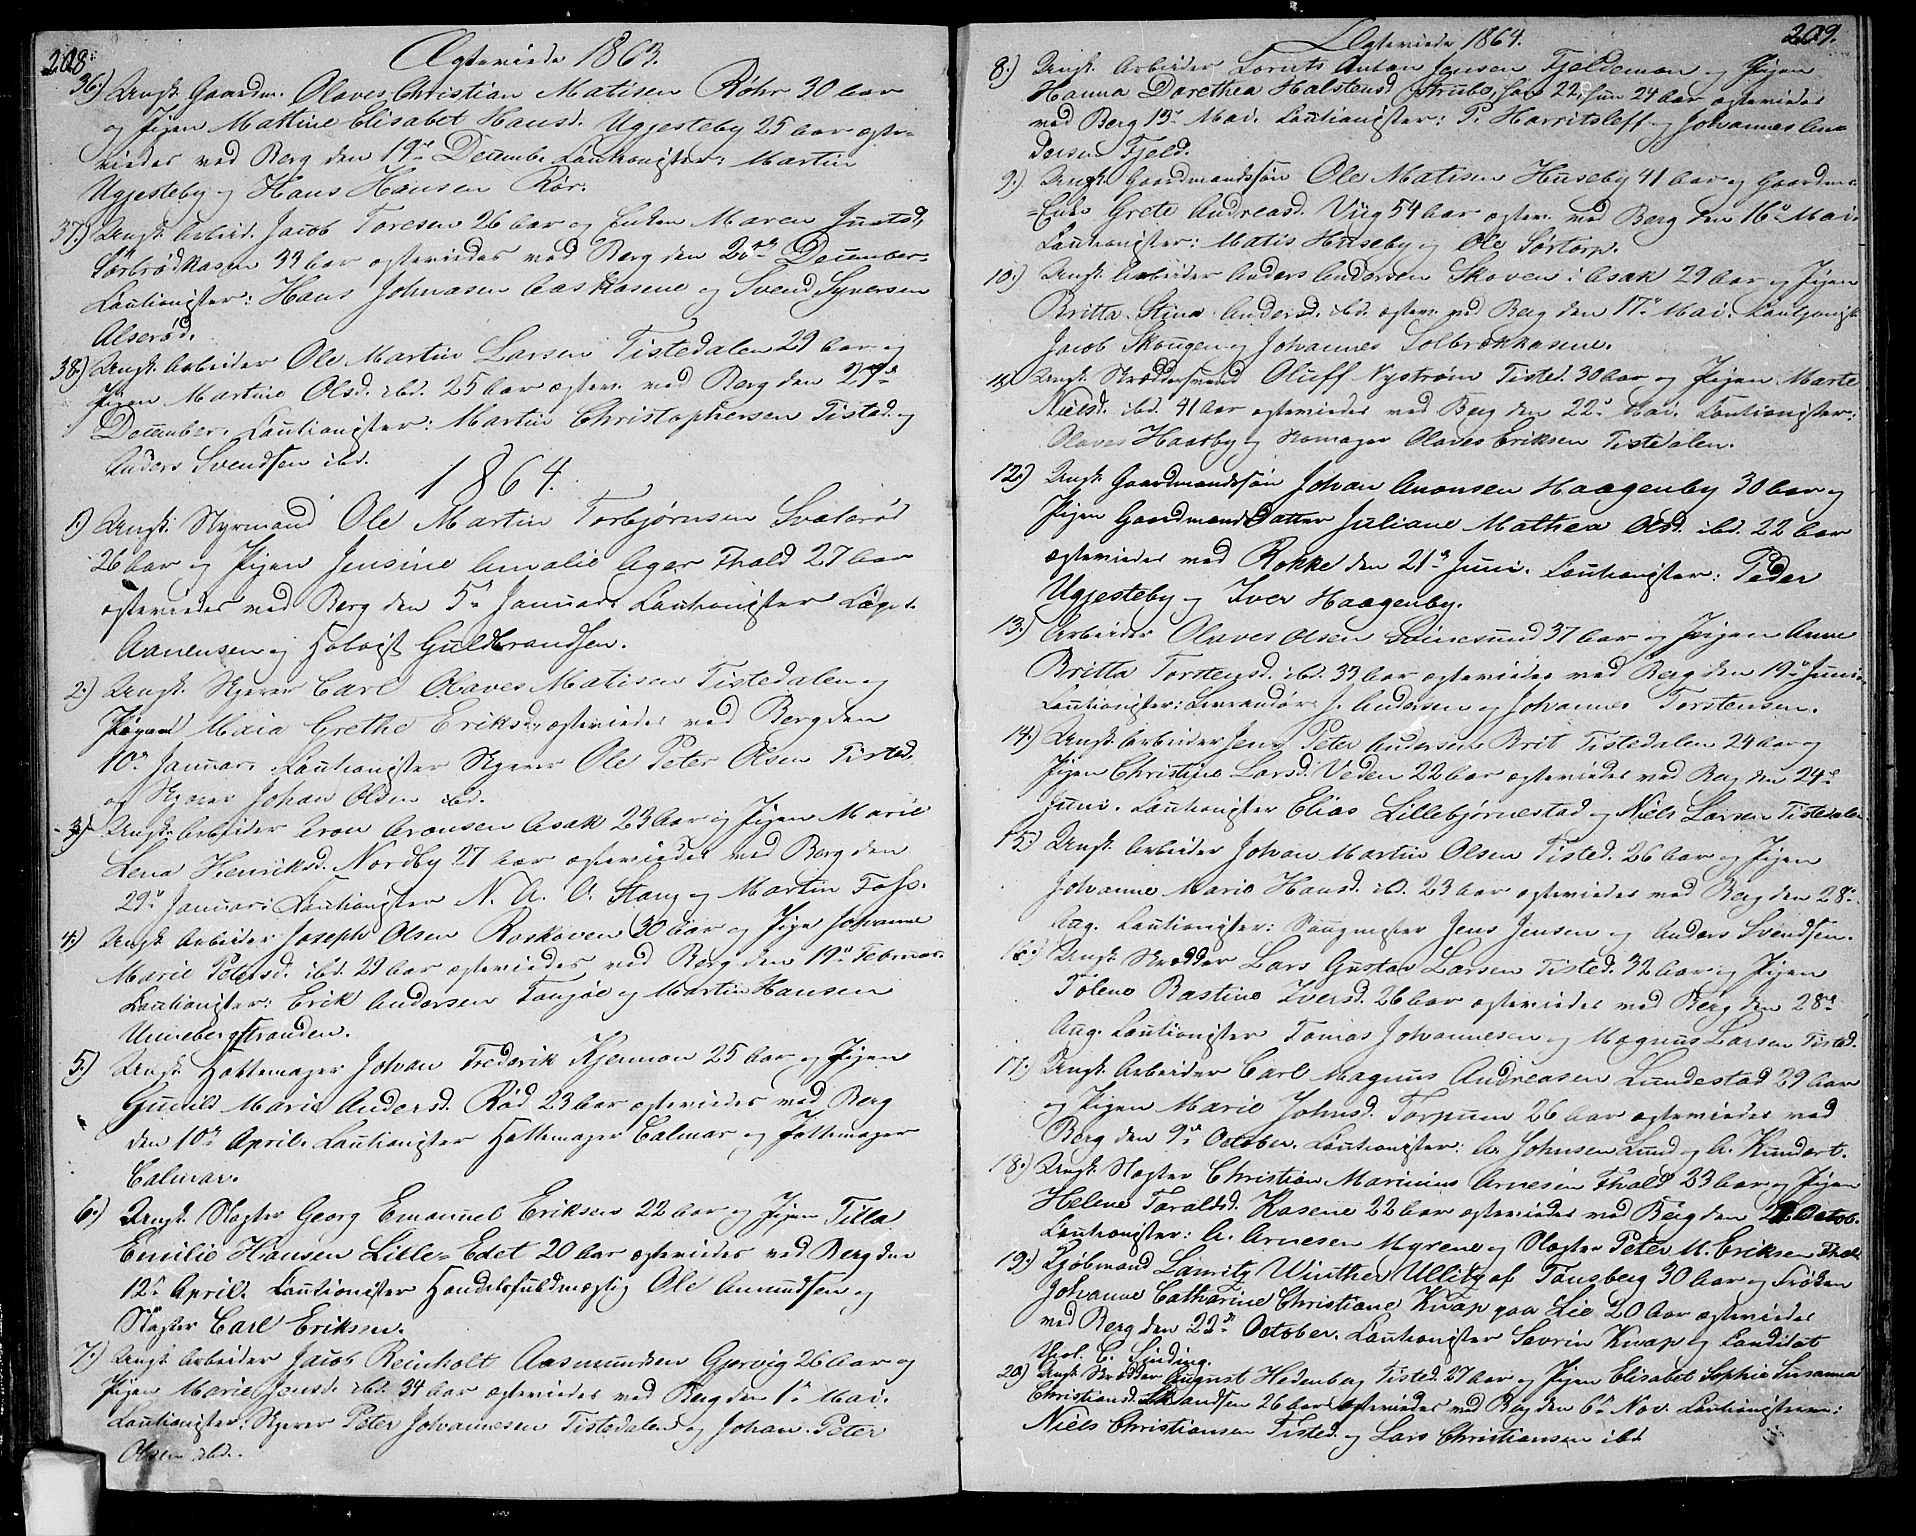 208.
Ægteviede 1863.
36.) Ungk. Gaardm. Olaves Christian Matisen Røhr 30 Aar
og Pigen Mattine Elisabet Hansd. Ugjesteby 25 Aar ægte-
viedes ved Berg den 19de Decembr. Cautionister: Martin
Ugjesteby og Hans Hansen Rør.
37.) Ungk. Arbeid. Jacob Toresen 26 Aar og Enken Maren Justsd.
Sørbrødkasen 33 Aar ægteviedes ved Berg den 26de December.
Cautionister: Hans Johnasen Aaskasene og Svend Syversen
Alserød.
38.) Ungk. Arbeider Ole Martin Larsen Tistedalen 29 Aar og
Pigen Martine Olsd. ibd. 25 Aar ægtev. ved Berg den 27de
December. Cautionister: Martin Christophersen Tisted. og
Anders Svendsen ibd.
1864.
1.) Ungk. Styrmand Ole Martin Torbjørnsen Svalerød
26 Aar og Pigen Jensine Amalie Ager Fhald 27 Aar
ægteviedes ved Berg den 5te Januar. Cautionister
Aanensen og Guldbrandsen.
2.) Ungk. Skjærer Carl Olaves Matisen Tistedalen og
Pigen Maia Grethe Eriksd. ægteviedes ved Berg den
10de Januar. Cautionister Skjærer Ole Peter Olsen Tisted.
og Skjærer Johan Olsen ibd.
3.) Ungk. Arbeider Aron Aronsen Asak 23 Aar og Pigen Marie
Lena Henriksd. Nordby 27 Aar ægteviedes ved Berg den
29de Januar. Cautionister N. A. O. Stang og Martin Foss.
4.) Ungk. Arbeider Joseph Olsen Roskoven 30 Aar og Pige Johanne
Marie Petersd. ibd. 29 Aar ægteviedes ved Berg den 19de Februar.
Cautionister: Erik Andersen og Martin Hansen
Unnebergstranden.
5.) Ungk. Hattemager Johan Frederik Kjerman 25 Aar og Pigen
Gunild Marie Andersd. Rød 23 Aar ægteviedes ved Berg
den 10de April. Cautionister Hattemager Calmar og Hattemager
Calmar.
6.) Ungk. Slagter Georg Emanuel Eriksen 22 Aar og Pigen Tilla
Emilie Hansen Lille-Edet 20 Aar ægteviedes ved Berg den
12te April. Cautionister Handelsfuldmægtig Ole Amundsen og
Slagter Carl Eriksen.
7.) Ungk. Arbeider Jacob Reinholt Aasmundsen Gjervig 26 Aar og
Pigen Marie Jensd. ibd. 34 Aar ægteviedes ved Berg den 1de Mai.
Cautionister: Skjærer Peter Johannesen Tistedalen og Johan Peter
Olsen ibd.
Ægteviede 1864.
209.
8.) Ungk. Arbeider Lorents Anton Jensen Fjeldeman og Pigen
Hanna Dorethea Halstensd. Strubo, han 22, hun 24 Aar ægteviedes
ved Berg 13de Mai. Cautionister: P. Harritsleff og Johannes An-
dersen Fjeld.
9.) Ungk. Gaardmandssøn Ole Matisen Huseby 41 Aar og Gaardm.
Enke Grete Andreasd. Viig 54 Aar ægtev. ved Berg den 16de Mai.
Cautionister: Matis Huseby og Ole Sørtorp.
10.) Ungk. Arbeider Anders Andersen Skoven i Asak 29 Aar og Pigen
Britta Stina Andersd. ibd. ægtev. ved Berg den 17de Mai. Cautionist.
Jacob Skougen og Johannes Solbrækkasene.
11.) Ungk. Skræddersvend Oluff Nystrøm Tisted. 30 Aar og Pigen Marte
Nielsd. ibd. 41 Aar ægteviedes ved Berg den 22de Mai. Cautionister:
Olaves Haasby og Skomager Olaves Eriksen Tistedalen.
12.) Ungk. Gaardmandssøn Johan Anonsen Haagenby 30 Aar og
Pigen Gaardmandsdatter Juliane Mathea Olsd. ibd. 22 Aar
ægteviedes ved Rokke den 21de Juni. Cautionister: Peder
Ugjesteby og Iver Haagenby.
13.) Arbeider Olaves Olsen Svinesund 37 Aar og Pigen Anne
Britta Torstensd. ibd. 33 Aar ægteviedes ved Berg den 19de Juni.
Cautionister: Leverandør J. Andersen og Johannes Torstensen.
14.) Ungk. Arbeider Jens Peter Andersen Brit Tistedalen 24 Aar og
Pigen Christine Larsd. Veden 22 Aar ægteviedes ved Berg den 24de
Juni. Cautionister Elias Lillebjørnestad og Niels Larsen Tistedalen
15.) Ungk. Arbeider Johan Martin Olsen Tisted. 26 Aar og Pigen
Johanne Marie Hansd. ibd. 23 Aar ægteviedes ved Berg den 28de
Aug. Cautionister: Saugmester Jens Jensen og Anders Svendsen.
16.) Ungk. Skrædder Lars Gustav Larsen Tisted. 32 Aar og Pigen
Tolene Bastine Iversd. 26 Aar ægteviedes ved Berg den 28de
Aug. Cautionister Tomas Johannesen og Magnus Larsen Tisted.
17.) Ungk. Arbeider Carl Magnus Andreasen Lundestad 29 Aar
og Pigen Marie Johnsd. Torpum 26 Aar ægteviedes ved
Berg den 9de October. Cautionister: A. Johnsen Lund og A. Kundert.
18.) Ungk. Slagter Christian Marinius Arnesen Fhald 23 Aar og Pigen
Helene Taraldsd. Kasene 22 Aar ægteviedes ved Berg den Octob.
Cautionister: A. Arnesen Myrene og Slagter Peter M. Eriksen Fhald.
19.) Kjøbmand Lauritz Winther Ullitz af Tønsberg 30 Aar og Frøken
Johanne Catharine Christiane Knap paa Lie 20 Aar ægteviedes
ved Berg den 23de October. Cautionister Sevrin Knap og Candidat
theol. C. Sinding.
20.) Ungk. Skrædder August Hedenbag Tisted. 27 Aar og Pigen Elisabet Sophie Susanna
Christiansd. Strandsen 26 Aar ægteviedes ved Berg den 6te Nov. Cautionisterne:
Niels Christiansen Tisted. og Lars Christiansen ibd.